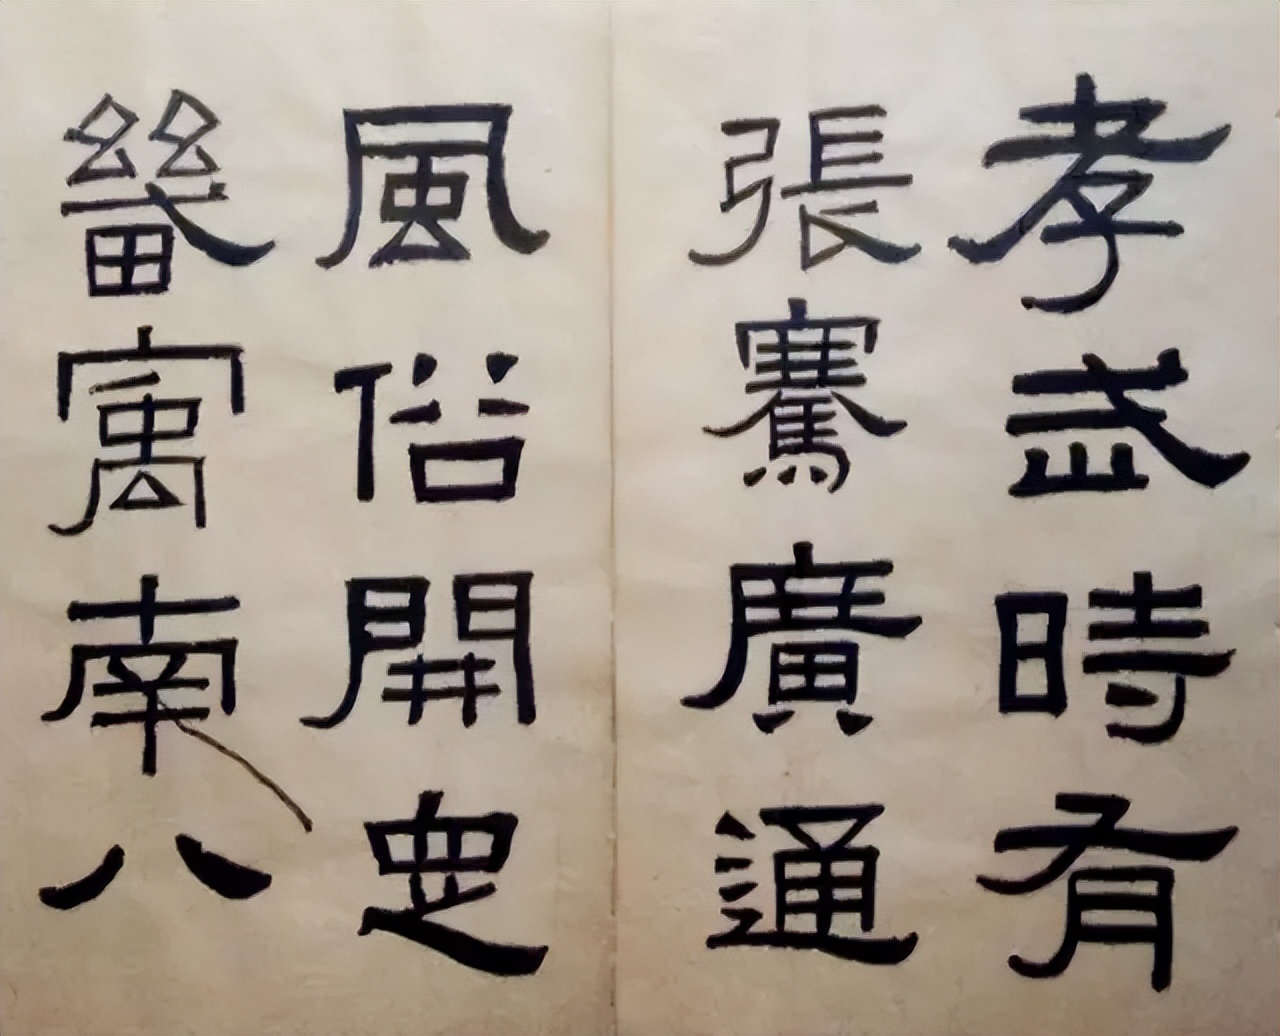 孝武時有
張騫廣通
風俗開定
畿寓南八